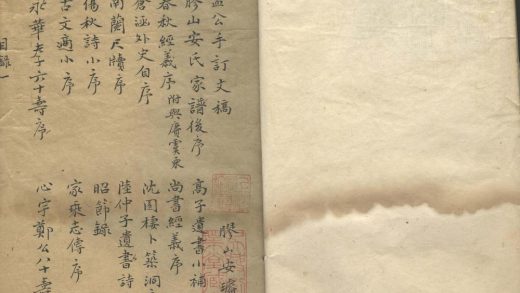 公手訂文稿 膠山安璿
膠山安氏家譜後序 高子遺書小補
春秋經義序 附與 雲東 尚書經義序
涵外史自序 沈園棲卜築洞
南蘭尺牘序 陸仲子遺書詩
楊秋詩小序 昭節錄
古文適小序 家乘志傳序
華老子六十壽序 心宇鄭公八十壽
目錄一